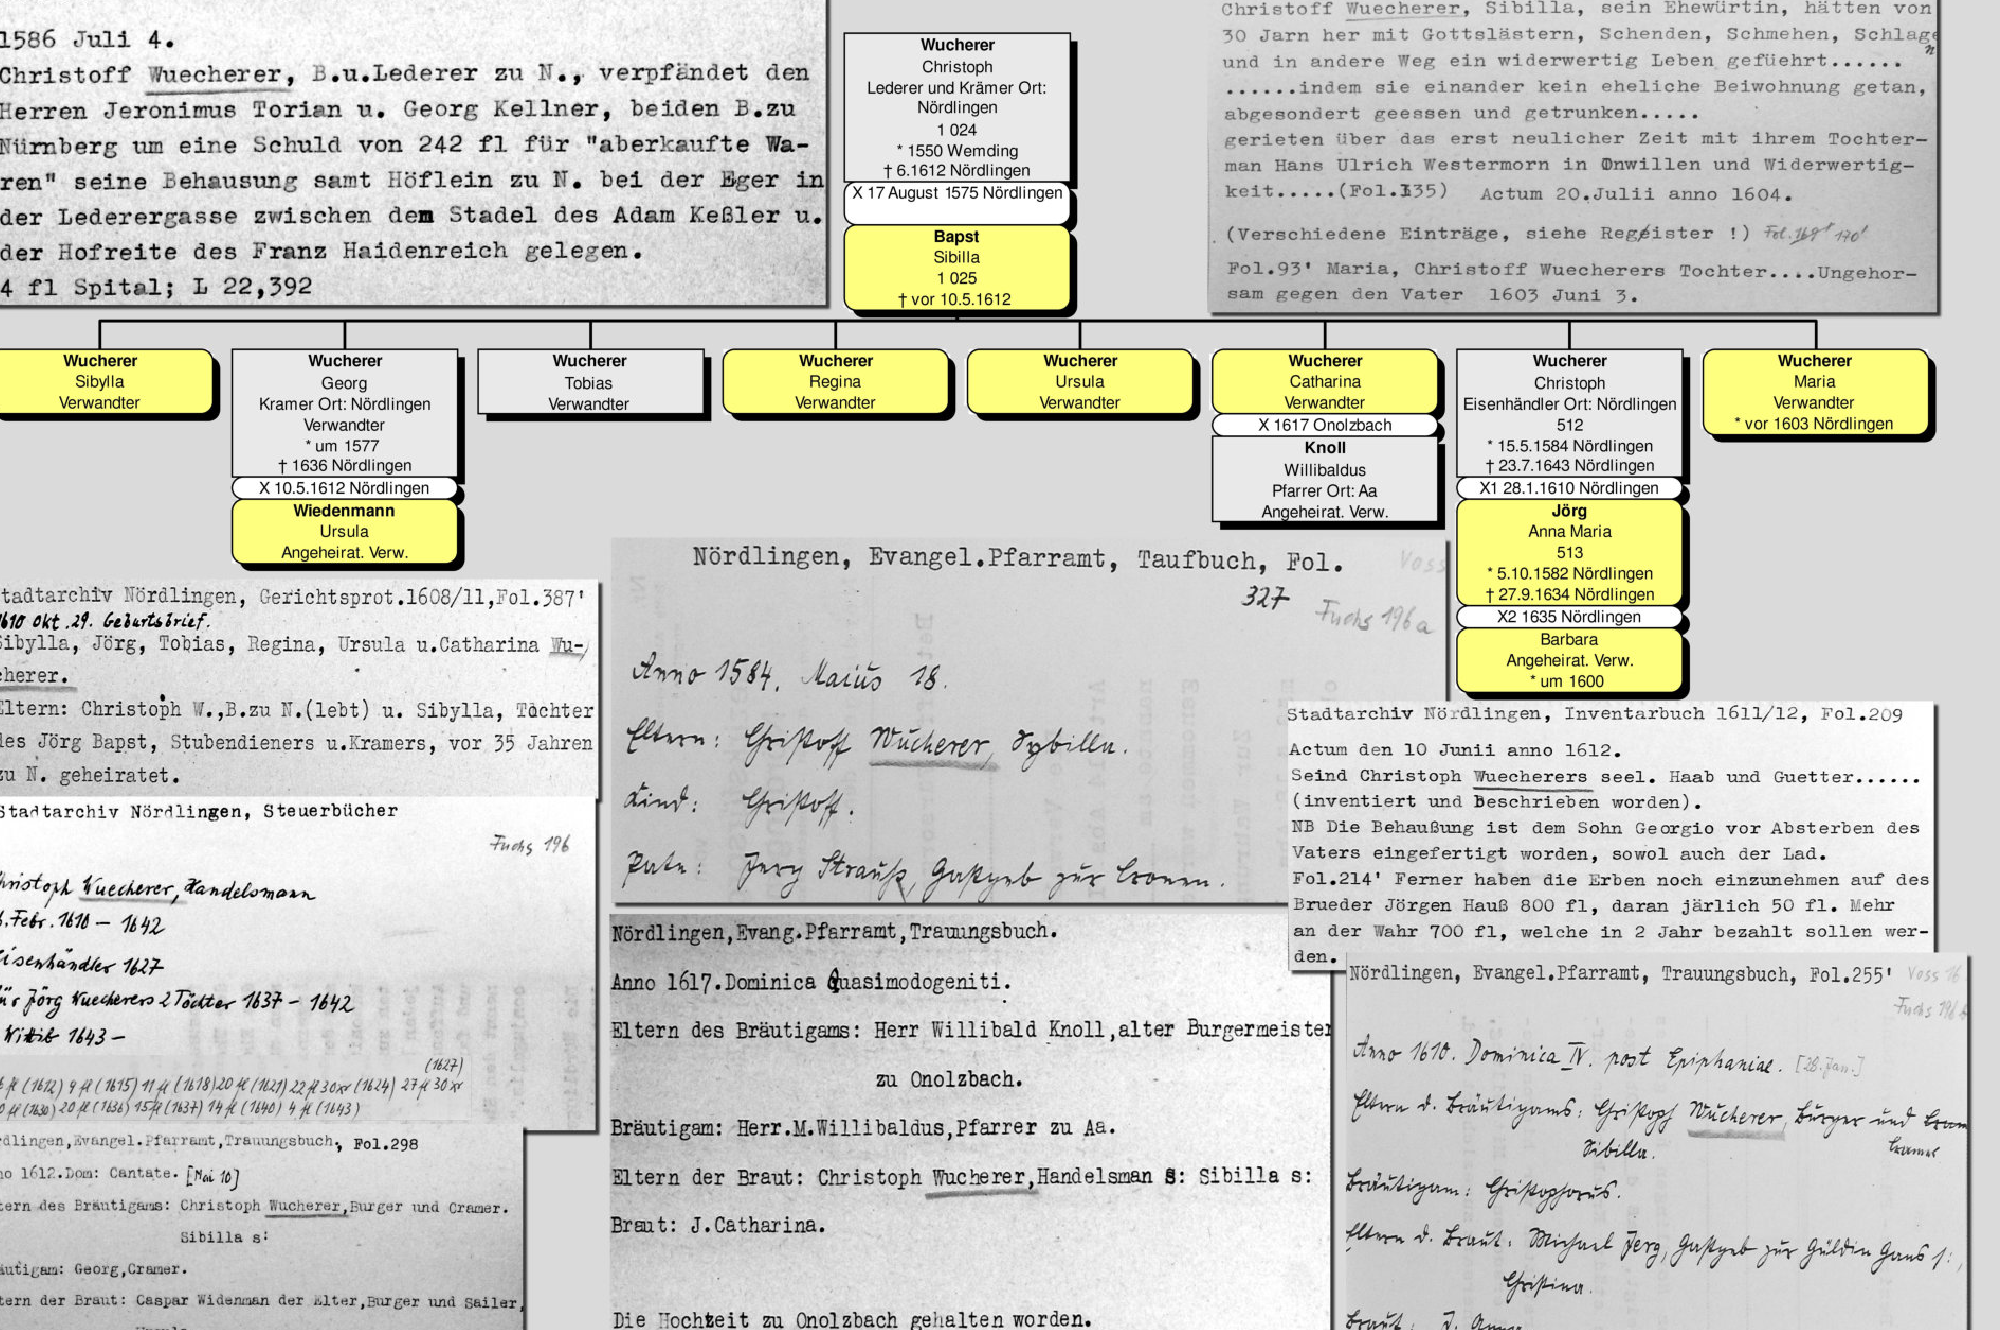 1586 Juli 4.
Christoff Wuecherer, B.u.Lederer zu N., verpfändet den
Herren Jeronimus Torian u. Georg Kellner, beiden B.zu
Nürnberg um eine Schuld von 242 fl für "aberkaufte Wa-
ren" seine Behausung samt Höflein zu N. bei der Eger in
der Lederergasse zwischen dem Stadel des Adam Keßler u.
der Hofreite des Franz Haidenreich gelegen.
4 fl Spital; L 22,392
Wucherer
Christoph
Lederer und Krämer Ort:
Nördlingen
1 024
* 1550 Wemding
† 6.1612 Nördlingen
X 17 August 1575 Nördlingen
Bapst
Sibilla
1 025
† vor 10.5.1612
Christoff Wuecherer, Sibilla, sein Ehewürtin, hätten von
30 Jarn her mit Gottslästern, Schenden, Schmehen, Schlage
n
und in andere Weg ein widerwertig Leben gefüehrt......
......indem sie einander kein eheliche Beiwohnung getan,
abgesondert geessen und getrunken.....
gerieten über das erst neulicher Zeit mit ihrem Tochter-
man Hans Ulrich Westermorn in Onwillen und Widerwertig-
keit.....(Fol.135) Actum 20.Julii anno 1604.
(Verschiedene Einträge, siehe Register !) Fol. 169' 170'
Fol.93' Maria, Christoff Wuecherers Tochter....Ungehor-
sam gegen den Vater 1603 Juni 3.
Wucherer
Sibylla
Verwandter
Wucherer
Georg
Kramer Ort: Nördlingen
Verwandter
* um 1577
† 1636 Nördlingen
X 10.5.1612 Nördlingen
Wiedenmann
Ursula
Angeheirat. Verw.
Wucherer
Tobias
Verwandter
Wucherer
Regina
Verwandter
Wucherer
Ursula
Verwandter
Wucherer
Catharina
Verwandter
X 1617 Onolzbach
Knoll
Willibaldus
Pfarrer Ort: Aa
Angeheirat. Verw.
Wucherer
Christoph
Eisenhändler Ort: Nördlingen
512
* 15.5.1584 Nördlingen
† 23.7.1643 Nördlingen
X1 28.1.1610 Nördlingen
Jörg
Anna Maria
513
* 5.10.1582 Nördlingen
† 27.9.1634 Nördlingen
X2 1635 Nördlingen
Barbara
Angeheirat. Verw.
* um 1600
Wucherer
Maria
Verwandter
* vor 1603 Nördlingen
tadtarchiv Nördlingen, Gerichtsprot.1608/11,Fol.387'
1610 Okt. 29. Geburtsbrief.
Sibylla, Jörg, Tobias, Regina, Ursula u.Catharina Wu-
cherer.
Eltern: Christoph W.,B.zu N.(lebt) u. Sibylla, Tochter
des Jörg Bapst, Stubendieners u.Kramers, vor 35 Jahren
zu N. geheiratet.
Stadtarchiv Nördlingen, Steuerbücher
Fuchs 196
hristoph Wuecherer, Handelsmann
. Febr. 1610 – 1642
isenhändler 1627
ür Jörg Wuecherers 2 Töchter 1637 – 1642
Wittib 1643 –
(1627)
fl (1612) 9 fl (1615) 11 fl (1618) 20 fl (1621) 22 fl 30 xr (1624) 27 fl 30 xr
fl (1630) 20 fl (1636) 15 fl (1637) 14 fl (1640) 4 fl (1643)
rdlingen,Evangel.Pfarramt,Trauungsbuch, Fol.298
no 1612.Dom: Cantate. [Mai 10]
tern des Bräutigams: Christoph Wucherer,Burger und Cramer.
Sibilla s:
äutigam: Georg,Cramer.
tern der Braut: Caspar Widenman der Elter,Burger und Sailer,
Nördlingen, Evangel.Pfarramt, Taufbuch, Fol.
327
Voss
Fuchs 196a
Anno 1584. Maius 18.
Eltern: Christoff Wucherer, Sybilla.
Kind: Christoff.
Pate: Jerg Strauß, Gastgeb zur Cronen.
Nördlingen,Evang.Pfarramt,Trauungsbuch.
Anno 1617.Dominica Quasimodogeniti.
Eltern des Bräutigams: Herr Willibald Knoll,alter Burgermeister
zu Onolzbach.
Bräutigam: Herr.M.Willibaldus,Pfarrer zu Aa.
Eltern der Braut: Christoph Wucherer,Handelsman s: Sibilla s:
Braut: J.Catharina.
Die Hochzeit zu Onolzbach gehalten worden.
Stadtarchiv Nördlingen, Inventarbuch 1611/12, Fol.209
Actum den 10 Junii anno 1612.
Seind Christoph Wuecherers seel. Haab und Guetter......
(inventiert und Beschrieben worden).
NB Die Behaußung ist dem Sohn Georgio vor Absterben des
Vaters eingefertigt worden, sowol auch der Lad.
Fol.214' Ferner haben die Erben noch einzunehmen auf des
Brueder Jörgen Hauß 800 fl, daran järlich 50 fl. Mehr
an der Wahr 700 fl, welche in 2 Jahr bezahlt sollen wer-
den.
Nördlingen, Evangel.Pfarramt, Trauungsbuch, Fol.255'
Voss 16
Fuchs 196
Anno 1610. Dominica IV. post Epiphaniae. [28. Jan.]
Eltern d. Bräutigams: Christoph Wucherer, Burger und Cram
Sibilla. Cramer
Bräutigam: Christophorus.
Eltern d. Braut: Michael Jerg, Gastgeb zur Gülden Gans s:,
Christina.
Braut: J. Anna